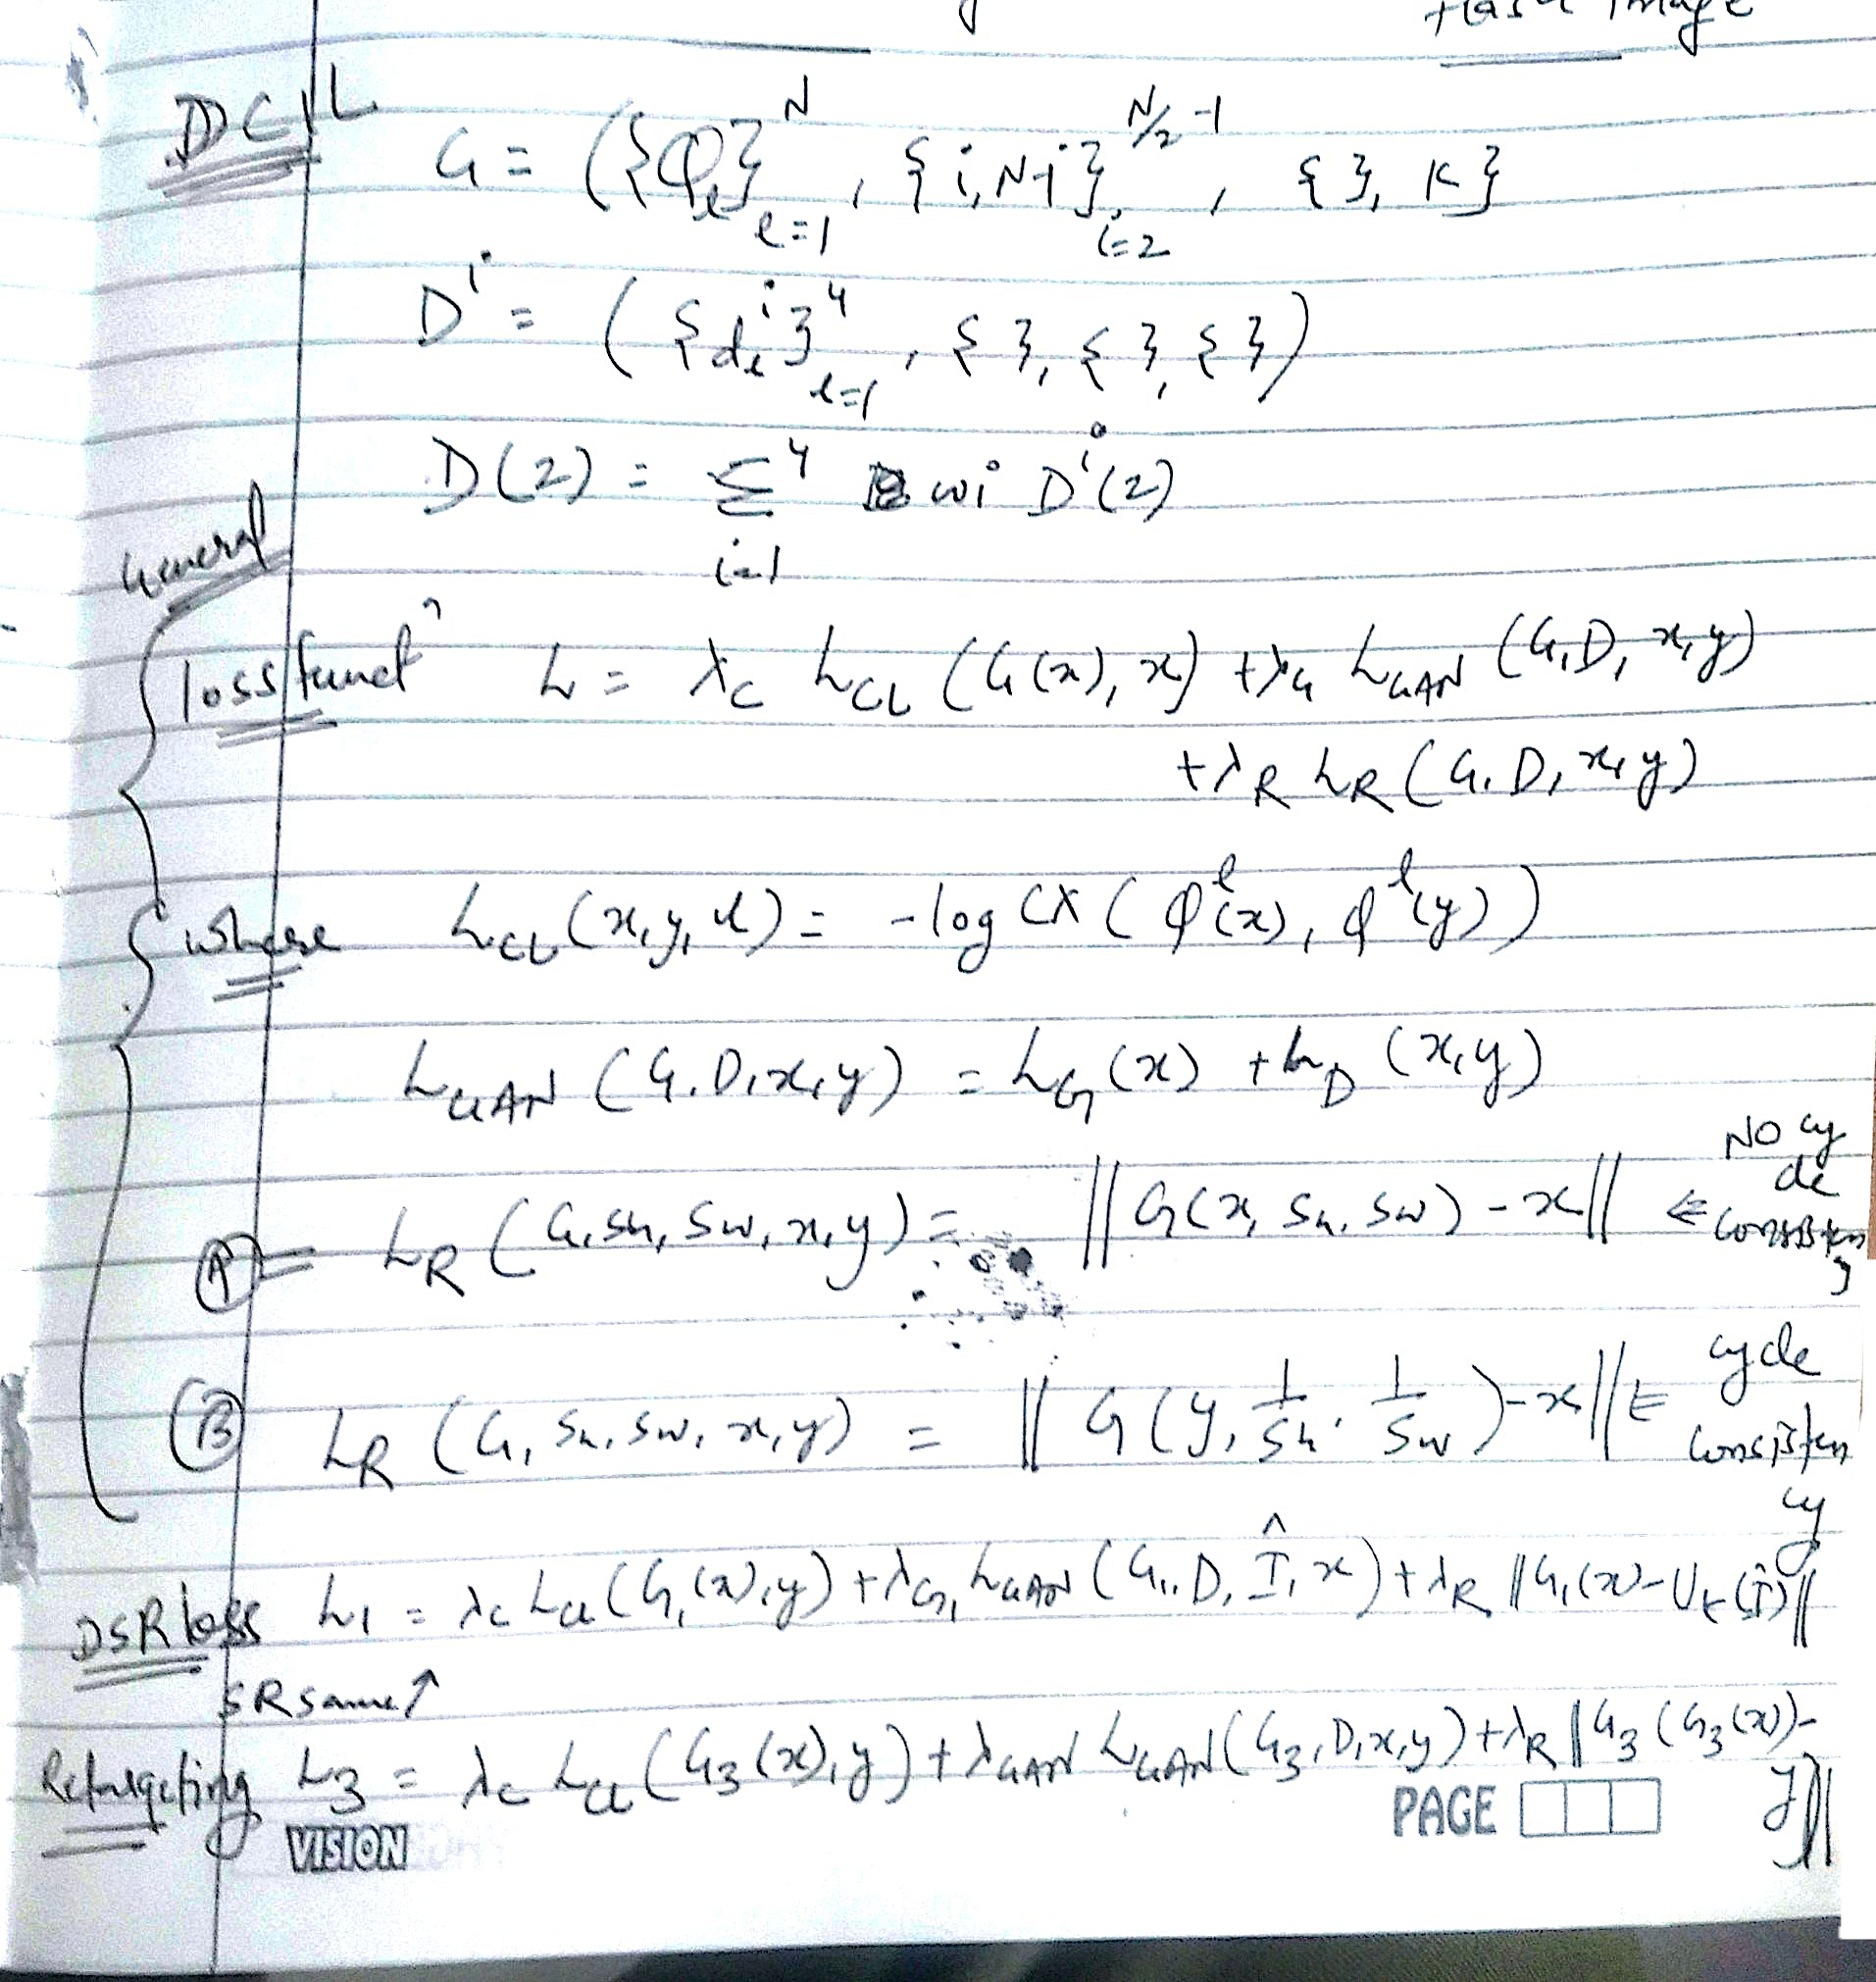 flash image
DCIL G = ({φ_l}^N_{l=1}, {i, N-i}^{N/2-1}_{i=2}, { }, K}
D^i = ({d_l^i}^4_{l=1}, { }, { }, { })
D(z) = Σ^4_{i=1} w_i D^i(z)
General
loss funct^n L = λ_C L_CL (G(x), x) + λ_G L_GAN (G, D, x, y)
+ λ_R L_R (G, D, x, y)
where L_CL (x, y, l) = -log CX (φ^l(x), φ^l(y))
L_GAN (G, D, x, y) = L_G (x) + L_D (x, y)
(A) = L_R (G, S_h, S_w, x, y) = ||G(x, S_h, S_w) - x|| ⇐ No cycle consistency
(B) L_R (G, S_h, S_w, x, y) = ||G(y, 1/S_h, 1/S_w) - x|| ⇐ cycle consistency
DSR loss L_1 = λ_C L_CL (G_1(x), y) + λ_{G_1} L_GAN (G_1, D, Î, x) + λ_R ||G_1(x) - U_t(Î)||
SR same ↑
Retargeting L_3 = λ_C L_CL (G_3(x), y) + λ_GAN L_GAN (G_3, D, x, y) + λ_R ||G_3(G_3(x)) - y||
VISION PAGE